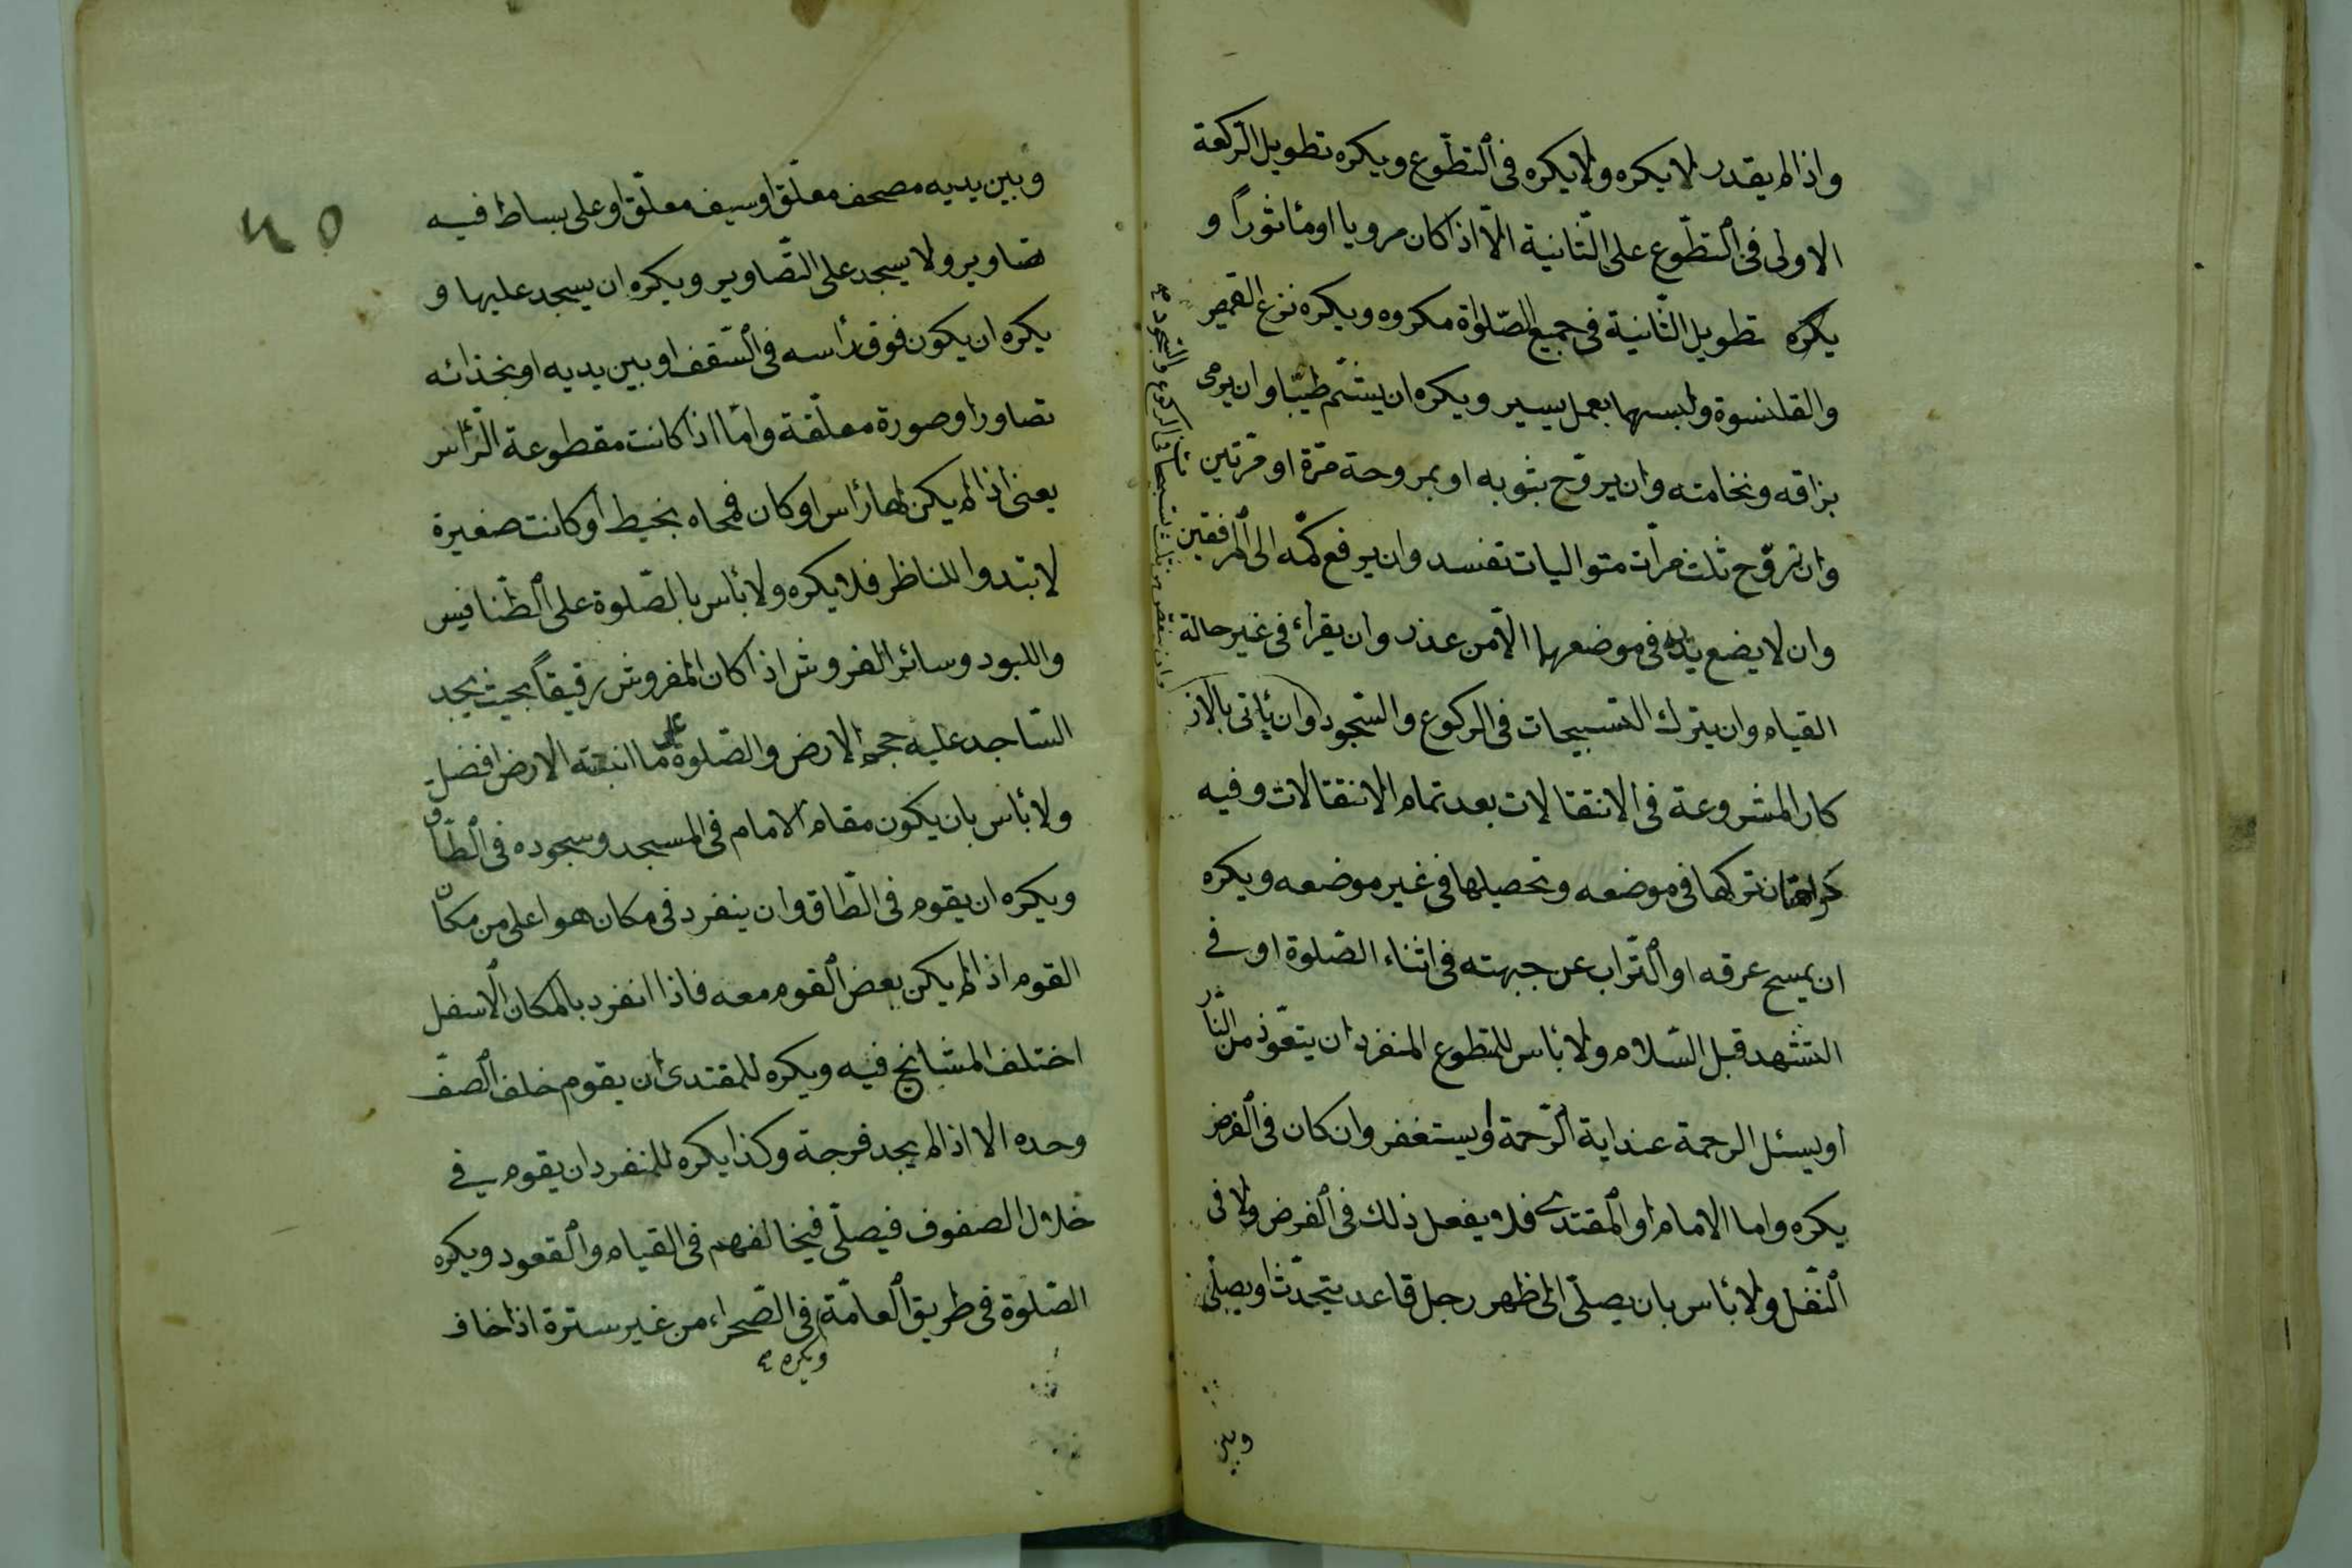 واذا لم يقدر لا يكره ولا يكره فى التطوع ويكره تطويل الركعة
الاولى فى التطوع على الثانية الا اذا كان مرويا او مأثورا و
يكره تطويل الثانية فى جميع الصلواة مكروه ويكره نزع القميص
والقلنسوة ولبسهما بعمل يسير ويكره ان يشتم طيبا وان يرمى
بزاقه ونخامته وان يروح بثوبه او بمروحة مرة او مرتين
وان تروح ثلث مرات متواليات تفسد وان يرفع كمه الى المرفقين
وان لا يضع يديه فى موضعهما الا من عذر وان يقراء فى غير حالة
القيام وان يترك التسبيحات فى الركوع والسجود وان يأتى بالاذ
كار المشروعة فى الانتقالات بعد تمام الانتقالات وفيه
كراهتان تركها فى موضعه وتحصيلها فى غير موضعه ويكره
ان يمسح عرقه او التراب عن جبهته فى اثناء الصلوة او فى
التشهد قبل السلام ولا بأس للتطوع المنفرد ان يتعوذ من النار
او يسئل الرحمة عند اية الرحمة او يستغفر وان كان فى الفرض
يكره واما الامام او المقتدى فلا يفعل ذلك فى الفرض ولا فى
النفل ولا بأس بان يصلى الى ظهر رجل قاعد يتحدث او يصلى
وبين
وان ينقص من ثلث تسبيحات فى الركوع والسجود
٤٥
وبين يديه مصحف معلق او سيف معلق او على بساط فيه
تصاوير ولا يسجد على التصاوير ويكره ان يسجد عليها و
يكره ان يكون فوق رأسه فى السقف او بين يديه او بحذائه
تصاور او صورة معلقة واما اذا كانت مقطوعة الرأس
يعنى اذا لم يكن لها رأس او كان فمحاه بخيط او كانت صغيرة
لا تبدوا للناظر فلا يكره ولا بأس بالصلوة على الطنافيس
واللبود وسائر الفروش اذا كان المفروش رقيقا بحيث يجد
الساجد عليه حجم الارض والصلوة على ما انبتته الارض افضل
ولا بأس بان يكون مقام الامام فى المسجد وسجوده فى الطاق
ويكره ان يقوم فى الطاق وان ينفرد فى مكان هو اعلى من مكان
القوم اذا لم يكن بعض القوم معه فاذا انفرد بالمكان الاسفل
اختلف المشايخ فيه ويكره للمقتدى ان يقوم خلف الصف
وحده الا اذا لم يجد فرجة وكذا يكره للمنفرد ان يقوم فى
خلال الصفوف فيصلى فيخالفهم فى القيام والقعود ويكره
الصلوة فى طريق العامة فى الصحراء من غير سترة اذا خاف
ويكره